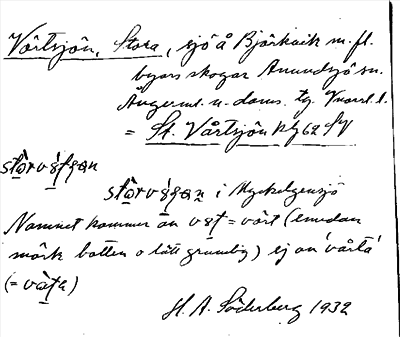 Vårtsjön, Stora, sjö å Björkvik m. fl.
byars skogar Anundsjö sn.
Ångerml. n. doms. tg. Vnorrl. l.
= St. Vårtsjön kbl 62 SV
stòrvǫ́tʂən
stòrvǫ́ʂən i Myckelgensjö
Namnet kommer än vǫt = vårt (emedan
mörk botten o lätt grumlig) ej än 'vårta'
(= vàʈa)
H. A. Söderberg 1932